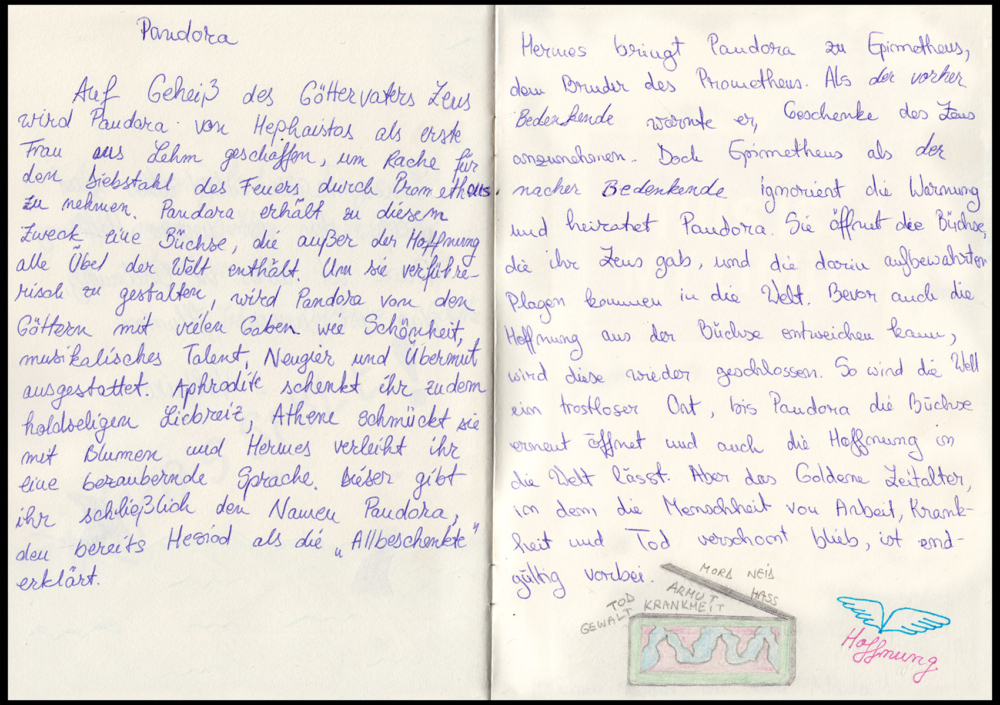 Pandora
Auf Geheiß des Göttervaters Zeus
wird Pandora von Hephaistos als erste
Frau aus Lehm geschaffen, um Rache für
den Diebstahl des Feuers durch Prometheus
zu nehmen. Pandora erhält zu diesem
Zweck eine Büchse, die außer der Hoffnung
alle Übel der Welt enthält. Um sie verführe-
risch zu gestalten, wird Pandora von den
Göttern mit vielen Gaben wie Schönheit,
musikalisches Talent, Neugier und Übermut
ausgestattet. Aphrodite schenkt ihr zudem
holdseligen Liebreiz, Athene schmückt sie
mit Blumen und Hermes verleiht ihr
eine bezaubernde Sprache. Dieser gibt
ihr schließlich den Namen Pandora,
den bereits Hesiod als die „Allbeschenkte“
erklärt.
Hermes bringt Pandora zu Epimetheus,
dem Bruder des Prometheus. Als der vorher
Bedenkende warnte er, Geschenke des Zeus
anzunehmen. Doch Epimetheus als der
nacher Bedenkende ignoriert die Warnung
und heiratet Pandora. Sie öffnet die Büchse,
die ihr Zeus gab, und die darin aufbewahrten
Plagen kommen in die Welt. Bevor auch die
Hoffnung aus der Büchse entweichen kann,
wird diese wieder geschlossen. So wird die Welt
ein trostloser Ort, bis Pandora die Büchse
erneut öffnet und auch die Hoffnung in
die Welt lässt. Aber das Goldene Zeitalter,
in dem die Menschheit von Arbeit, Krank-
heit und Tod verschont blieb, ist end-
gültig vorbei.
MORD NEID
HASS
ARMUT
TOD KRANKHEIT
GEWALT
Hoffnung